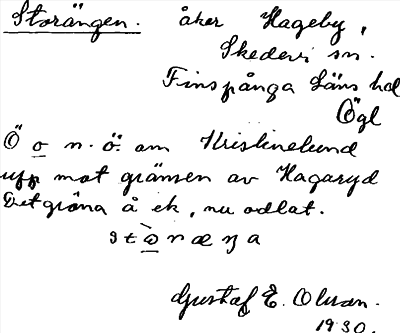 Storängen. åker Hageby,
Skedevi sn.
Finspånga Läns hd
Ögl
Ö o n. ö. om Kristinelund
upp mot gränsen av Hagaryd
Det gröna å ek, nu odlat.
Gustaf E. Olsson.
1930.